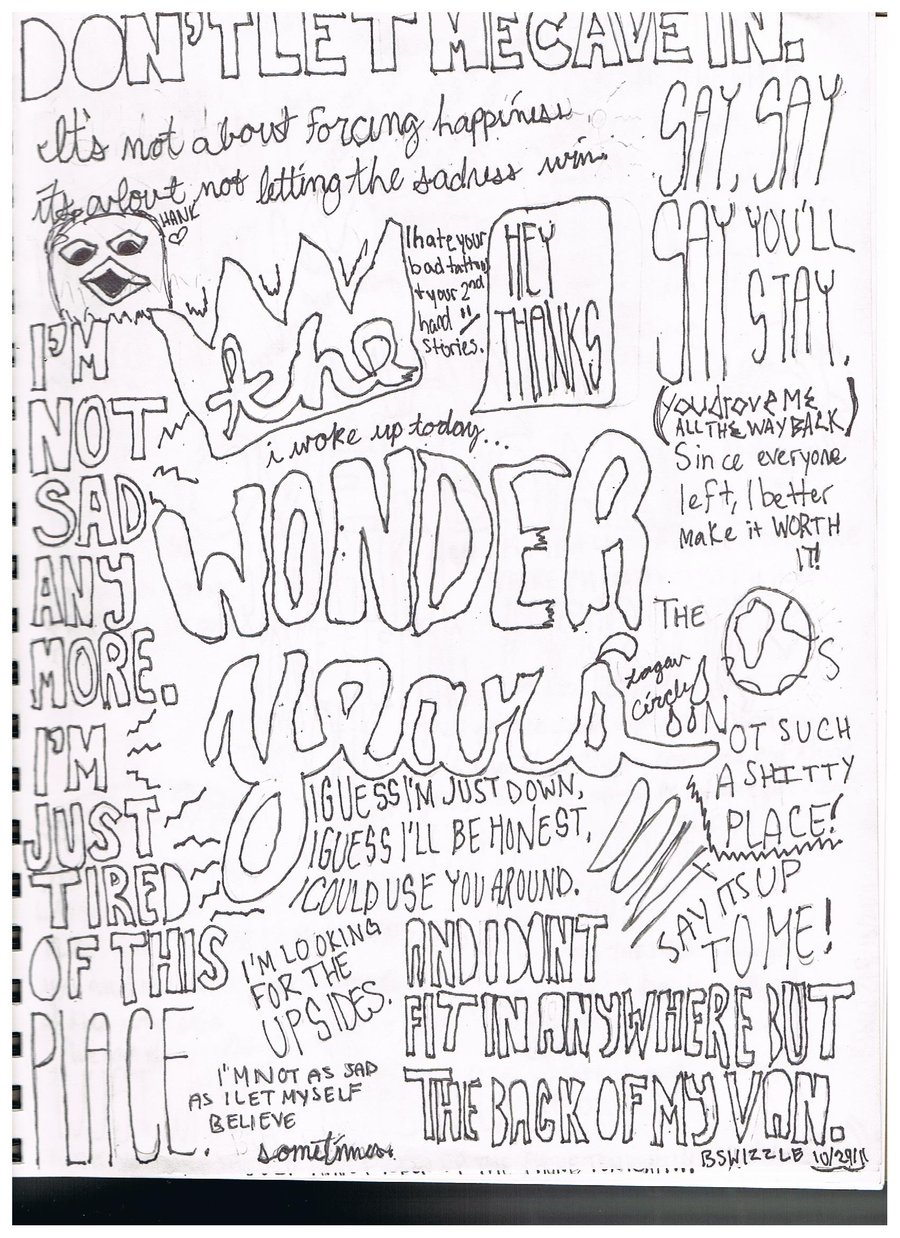 DON'T LET ME CAVE IN.
It's not about forcing happiness
its about not letting the sadness win.
HANK
SAY, SAY
SAY YOU'LL
STAY.
I hate your
bad tattoos
+ your 2nd
hand
stories.
HEY
THANKS
the
i woke up today...
WONDER
years
(YOU DROVE ME
ALL THE WAY BACK)
Since everyone
left, I better
make it WORTH
IT!
THE
S
Logan
Circle
NOT SUCH
A SHITTY
PLACE!
DON'T
SAY ITS UP
TO ME!
I'M
NOT
SAD
ANY
MORE.
I'M
JUST
TIRED
OF THIS
PLACE.
I GUESS I'M JUST DOWN,
I GUESS I'LL BE HONEST,
I COULD USE YOU AROUND.
I'M LOOKING
FOR THE
UPSIDES.
AND I DONT
FIT IN ANYWHERE BUT
THE BACK OF MY VAN.
I'M NOT AS SAD
AS I LET MYSELF
BELIEVE
sometimes.
BSWIZZLE 10/29/11